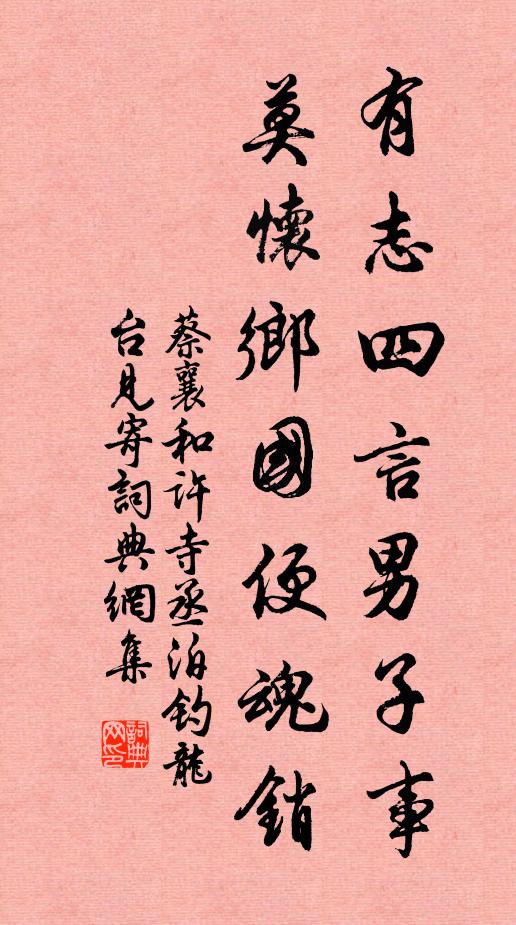 有志四言男子事
莫懷鄉國便魂銷
蔡襄和許寺丞泊釣龍
台見寄詞典網集
詞典网印